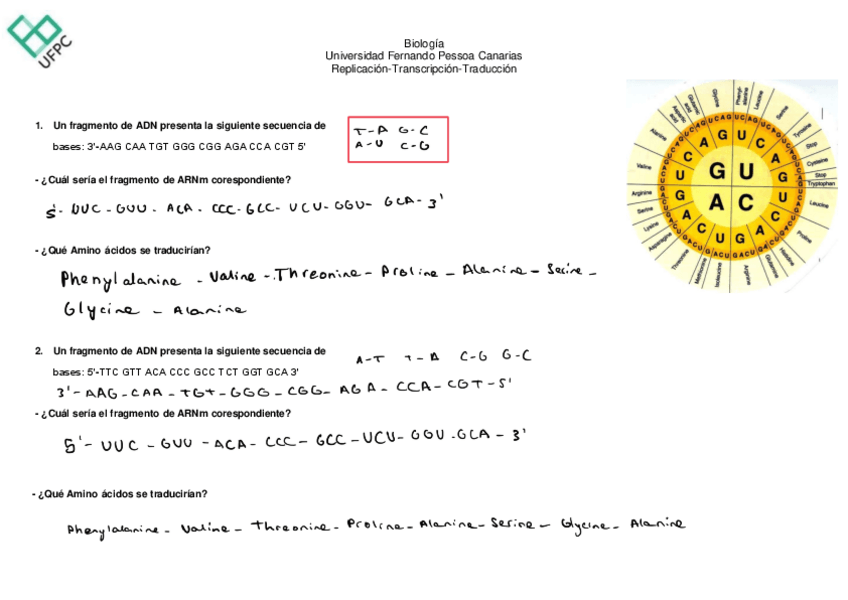 UFPC
Biología
Universidad Fernando Pessoa Canarias
Replicación-Transcripción-Traducción
1. Un fragmento de ADN presenta la siguiente secuencia de
bases: 3'-AAG CAA TGT GGG CGG AGA CCA CGT 5'
T-A G-C
A-U C-G
- ¿Cuál sería el fragmento de ARNm corespondiente?
5'- UUC - GUU - ACA - CCC - GCC - UCU - GGU - GCA - 3'
- ¿Qué Amino ácidos se traducirían?
Phenylalanine - Valine - Threonine - Proline - Alanine - Serine -
Glycine - Alanine
G U
A C
Glycine
Phenyl-alanine
Leucine
Serine
Tyrosine
Stop
Cysteine
Stop
Tryptophan
Leucine
Proline
Histidine
Glutamine
Arginine
Isoleucine
Methionine
Threonine
Asparagine
Lysine
Serine
Arginine
Valine
Alanine
Aspartic acid
Glutamic acid
2. Un fragmento de ADN presenta la siguiente secuencia de
bases: 5'-TTC GTT ACA CCC GCC TCT GGT GCA 3'
A-T T-A C-G G-C
3'- AAG - CAA - TGT - GGG - CGG - AGA - CCA - CGT - 5'
- ¿Cuál sería el fragmento de ARNm corespondiente?
5'- UUC - GUU - ACA - CCC - GCC - UCU - GGU - GCA - 3'
- ¿Qué Amino ácidos se traducirían?
Phenylalanine - Valine - Threonine - Proline - Alanine - Serine - Glycine - Alanine